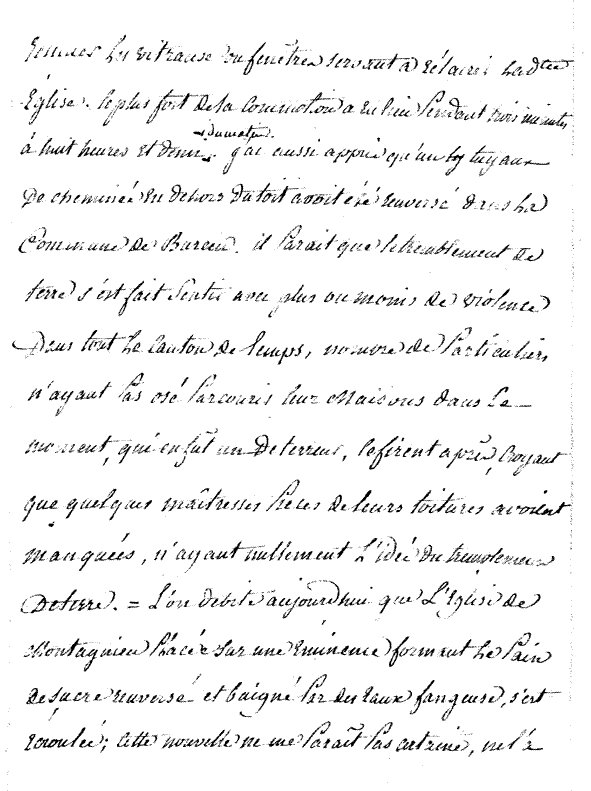 les vitraux ou fenêtres servant a Eclairer Ladtte
Église. le plus fort de la Commotion a Eu lieu Pendant trois minutes
à huit heures Et demie du matin. j'ai aussi appris qu'un tuyaux
De cheminée En dehors Du toit avoit été renversé dans La
Commune De Burcin. il Parait que letremblement De
terre s'est fait Sentir avec plus ou moins de violence
Dans tout Le Canton de Lemps, nombre de Particuliers
n'ayant Pas osé Parcourir leur Maisons dans Le
moment, qui en fut un De terreur, le firent après, Croyant
que quelques maîtresses Pièces de leurs toitures avoient
manquées, n'ayant nullement L'idée Du tremblement
De terre. = L'on debite aujourdhui que L'Eglise de
Montagnieu Placée Sur une Eminence formant Le Pain
de sucre renversé et baigné Par des Eaux fangeuse, s'est
Ecroulée; Cette nouvelle ne me Paraît Pas certaine, ne l'a